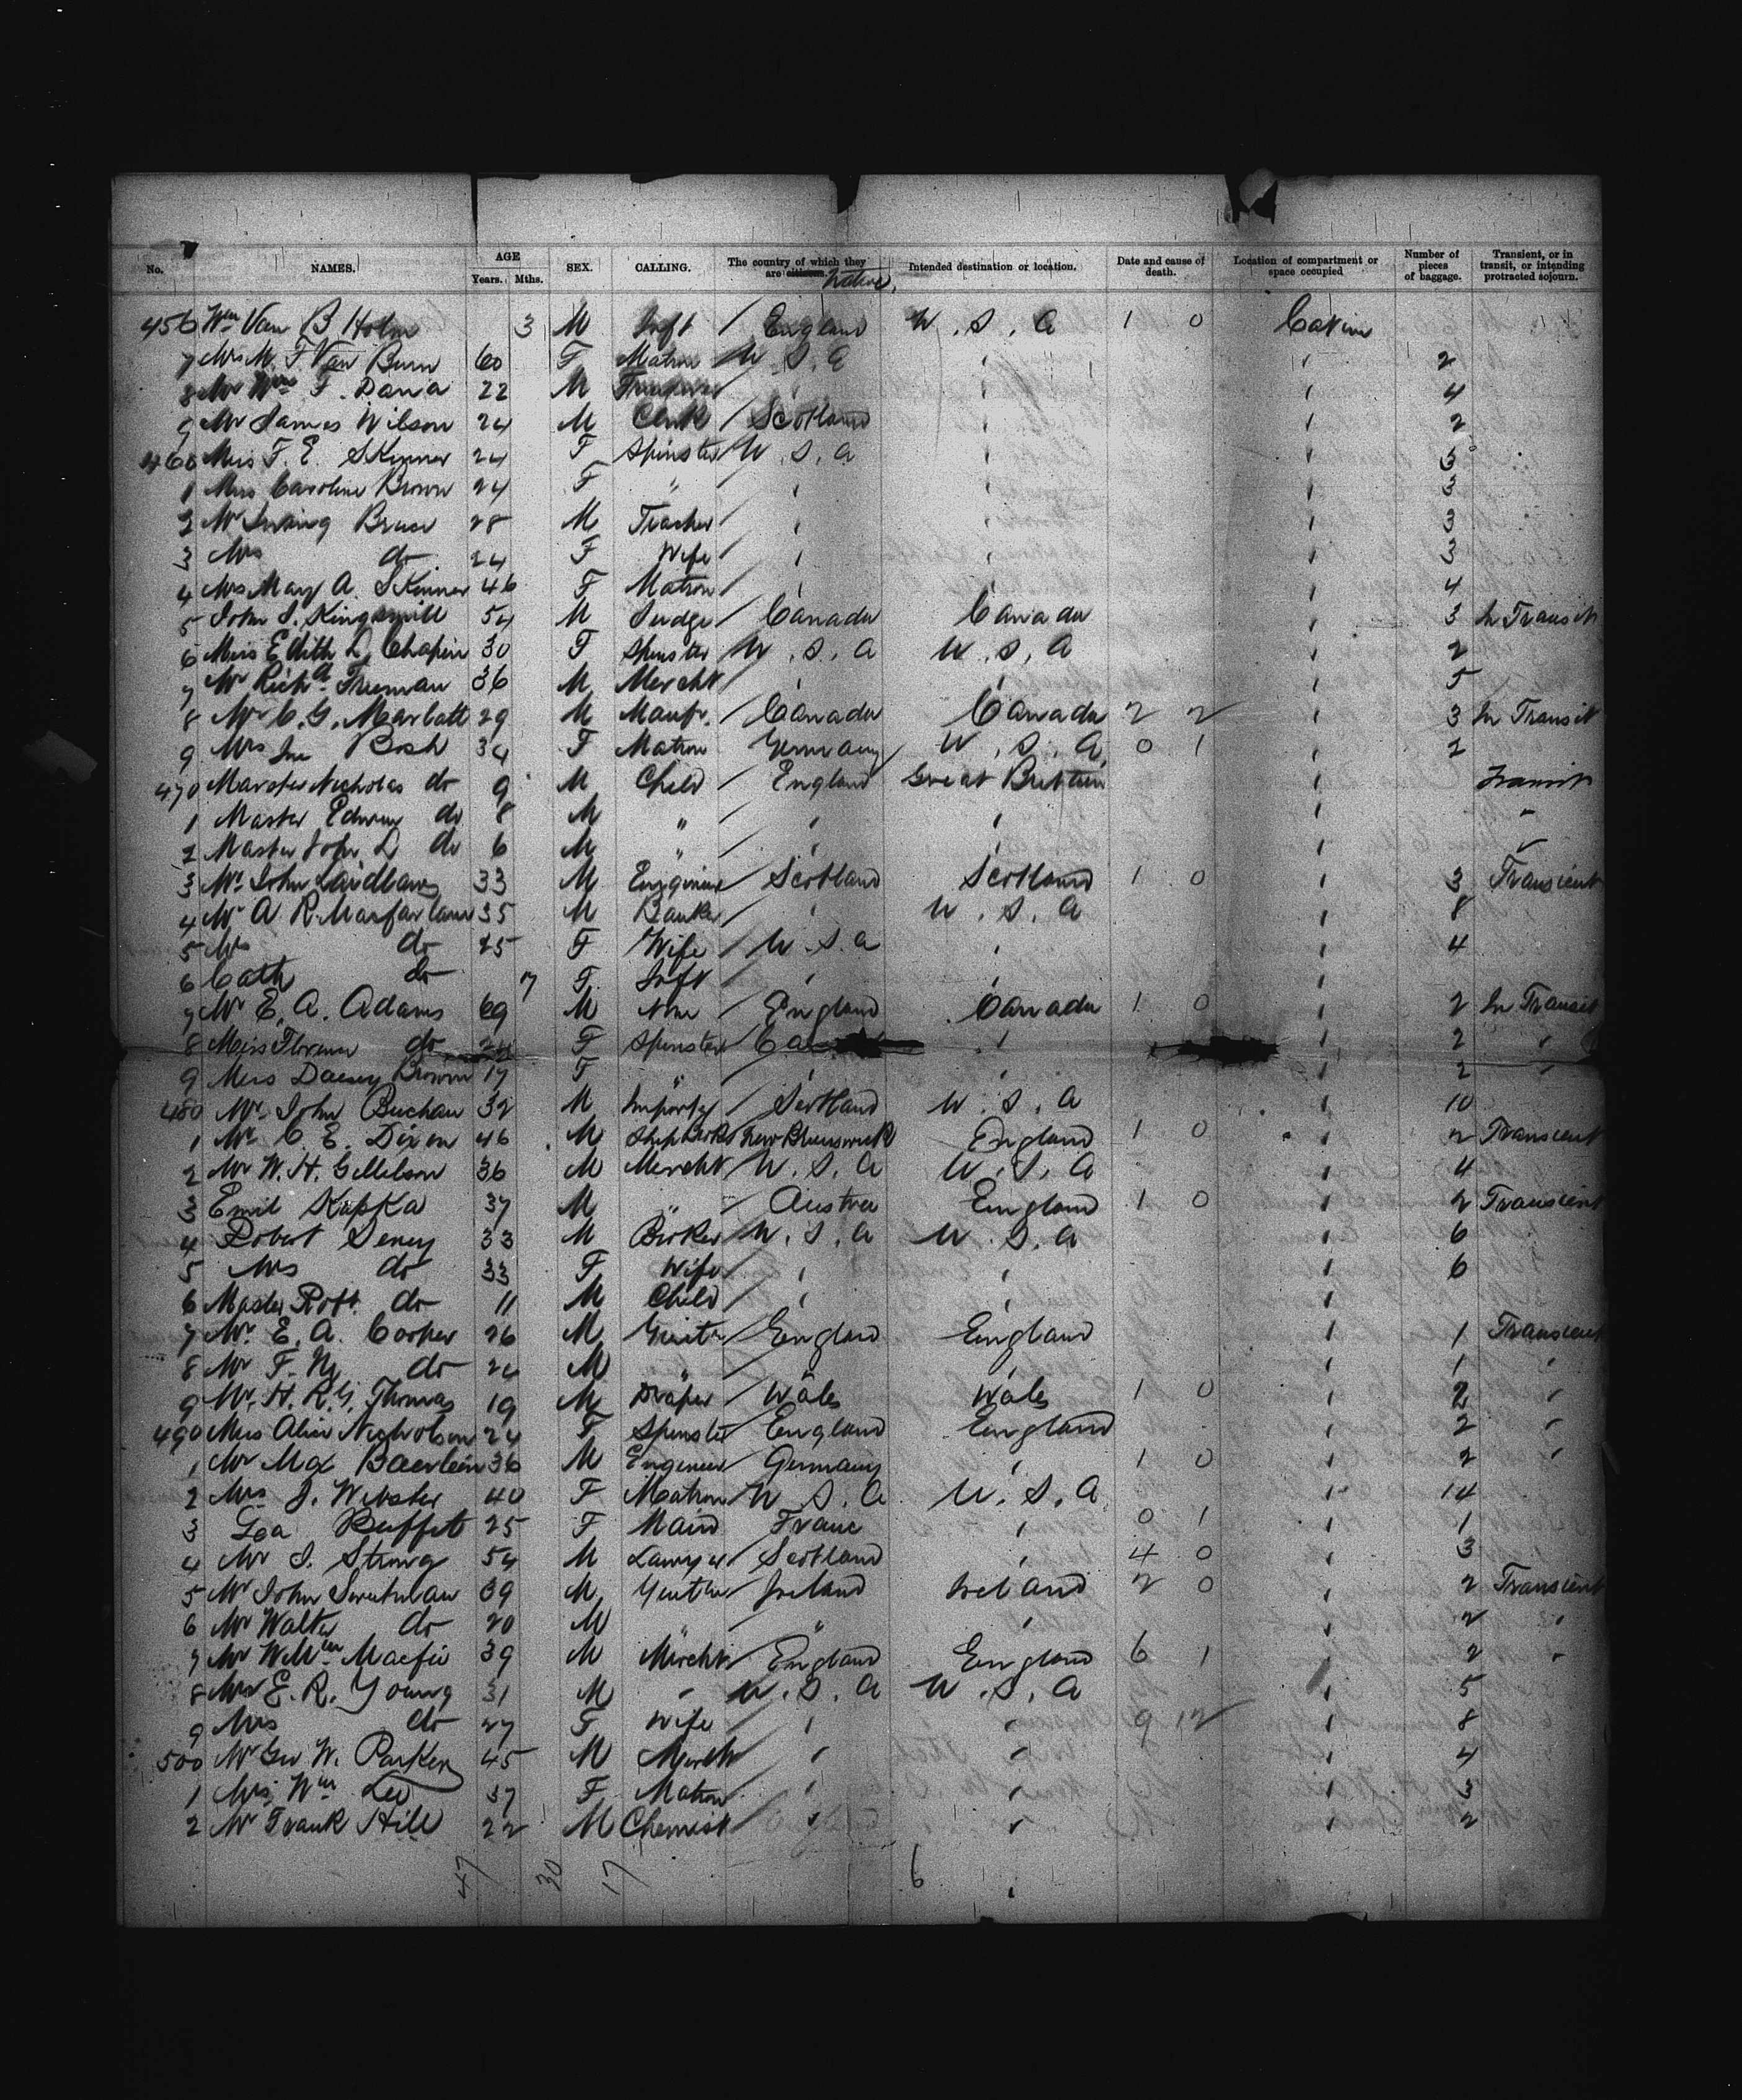 No. NAMES. AGE Years. Mths. SEX. CALLING. The country of which they are citizens. Native. Intended destination or location. Date and cause of death. Location of compartment or space occupied Number of pieces of baggage. Transient, or in transit, or intending protracted sojourn.
456 Wm Van B Holm 3 M Inft / England U.S.A 1 0 Cabin
7 Mrs M. F. Van Buren 60 F Matron / U.S.A ' ' 2
8 Mr Wm F. Dana 22 M ' ' 4
9 Mr James Wilson 24 M Clerk / Scotland ' ' 2
460 Miss F. E. Skinner 24 F Spinster / U.S.A ' ' 3
1 Miss Caroline Brown 24 F " / ' ' ' 3
2 Mr Irving Bruce 28 M Teacher / ' ' ' 3
3 Mrs do 24 F Wife / ' ' ' 3
4 Mrs Mary A. Skinner 46 F Matron / ' ' ' 4
5 John J. Kingsmill 54 M Judge / Canada Canada ' 3 In Transit
6 Miss Edith L. Chapin 30 F Spinster / U.S.A U.S.A ' 2
7 Mr Richd Freeman 36 M Mercht / ' ' ' 5
8 Mr C. G. Marlatt 29 M Manfr. / Canada Canada 2 2 ' 3 In Transit
9 Mrs Bosh 34 F Matron Germany / U.S.A 0 1 ' 2
470 Master Nicholas do 9 M Child / England Great Britain ' Transit
1 Master Edwin do 8 M " / ' ' ' "
2 Master John L do 6 M " / ' ' ' "
3 Mr John Laidlaw 33 M Engineer / Scotland Scotland 1 0 ' 3 Transient
4 Mr A. R. Macfarlane 35 M Banker / ' U.S.A ' 8
5 Mrs do 25 F Wife / U.S.A ' ' 4
6 Cath do 7 F. Inft / ' '
7 Mr E. A. Adams 69 M None / England Canada 1 0 ' 2 In Transit
8 Miss Florence do 24 F Spinster / Ca ' ' 2 '
9 Miss Daisey Brown 17 F " / ' ' ' 2 '
480 Mr John Buchan 32 M Importer / Scotland U.S.A ' 10
1 Mr C. E. Dixon 46 M / New Brunswick England 1 0 ' 2 Transient
2 Mr W. H. Gillelson 36 M Mercht / U.S.A U.S.A ' 4
3 Emil Kupka 37 M " / Austria England 1 0 ' 2 Transient
4 Robert Seney 33 M Broker / U.S.A U.S.A ' 6
5 Mrs do 33 F Wife / ' ' ' 6
6 Master Robt. do 11 M Child / ' ' '
7 Mr E. A. Cooper 26 M Gentn / England England ' 1 Transient
8 Mr F. do 24 M " / ' ' ' 1 '
9 Mr. H. R. G. Thomas 19 M Draper / Wales Wales 1 0 ' 2 '
490 Miss Alice Nicholson 24 F Spinster / England England ' 2 '
1 Mr Max Baerlein 36 M Engineer / Germany ' 1 0 ' 2 '
2 Mrs J. Webster 40 F Matron / U.S.A U.S.A ' 14
3 Lea Buffet 25 F Maid France ' 0 1 ' 1
4 Mr J. Strong 54 M Lawyer / Scotland ' 4 0 ' 3
5 Mr John Sweetman 39 M Gentn / Ireland Ireland 2 0 ' 2 Transient
6 Mr Walter do 20 M " / " ' ' 2 '
7 Mr Wm Macfie 39 M Mercht / England England 6 1 ' 2 "
8 Mr E. R. Young 31 M " U.S.A U.S.A ' 5
9 Mrs do 27 F Wife / ' ' 9 12 ' 8
500 Mr Geo W. Parker 45 M Mercht ' ' ' 4
1 Mrs Wm Lee 37 F Matron ' ' ' 3
2 Mr Frank Hill 22 M Chemist / ' ' ' 2
47 30 17 6